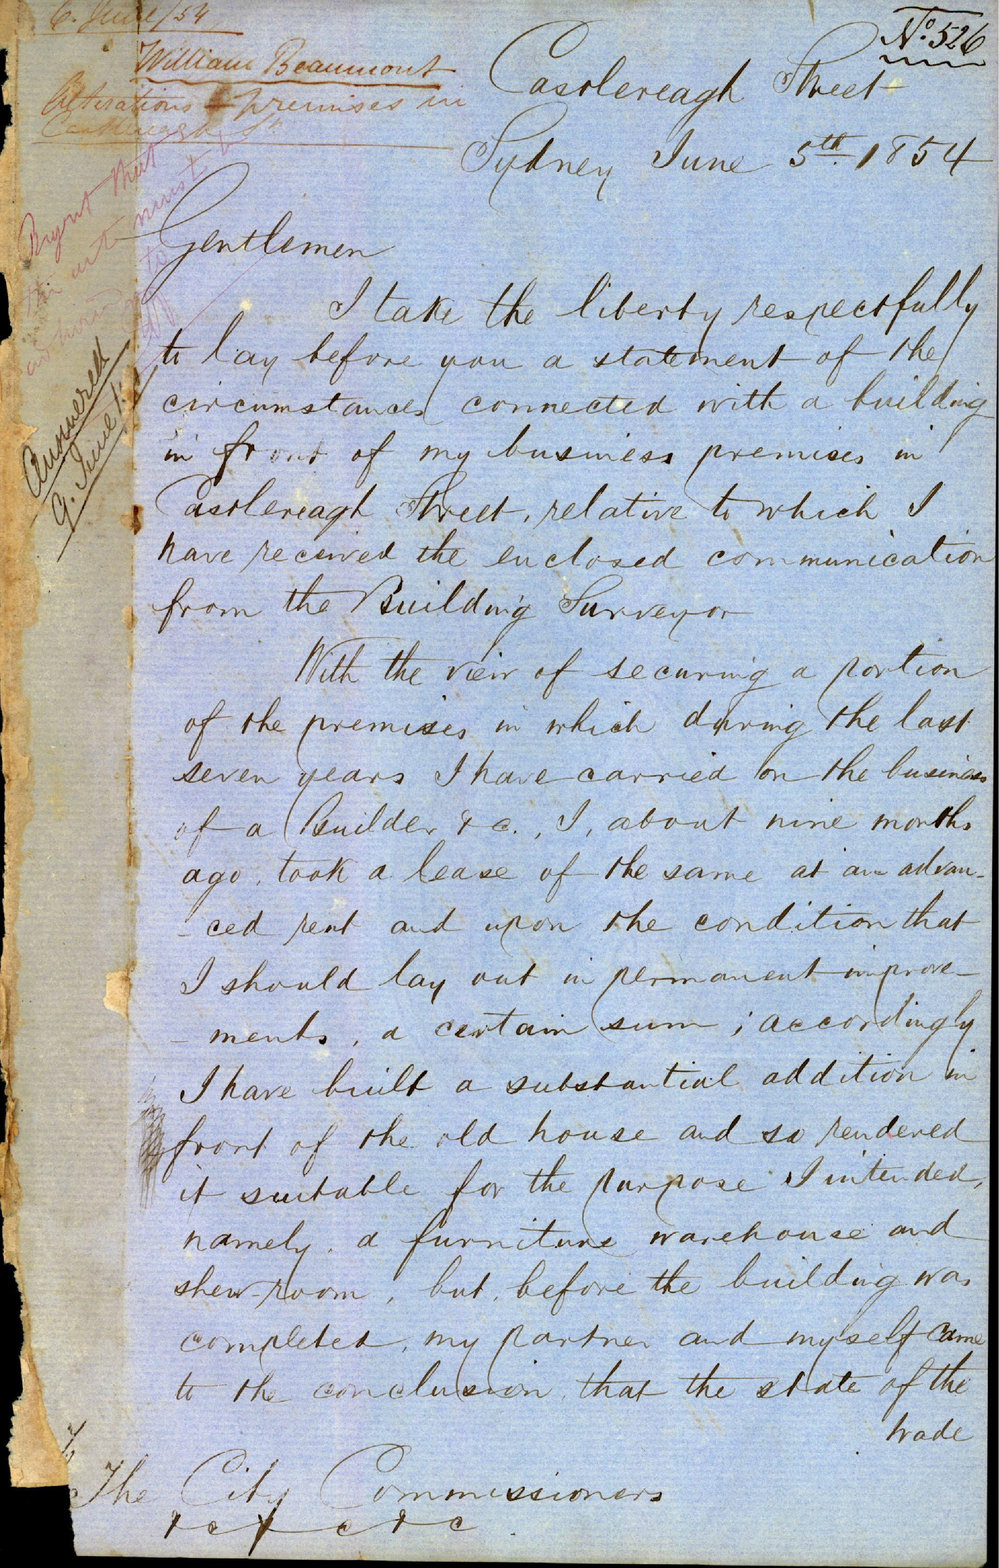 6. June/54
No. 526
William Beaumont
Alterations - premises in
Castlereagh St.
Castlereagh Street
Sydney June 5th. 1854
Report that
the art must b
to
Answered
9. June/
Gentlemen
I take the liberty respectfully
to lay before you a statement of the
circumstances connected with a building
in front of my business premises in
Castlereagh Street, relative to which I
have received the enclosed communication
from the Building Surveyor
With the view of securing a portion
of the premises in which during the last
seven years I have carried on the business
of a Builder &c., I, about nine months
ago, took a lease of the same at an advan-
-ced rent and upon the condition that
I should lay out in permanent improve-
-ments, a certain sum; accordingly
I have built a substantial addition in
front of the old house and so rendered
it suitable for the purpose I intended,
namely, a furniture warehouse and
shew-room, but, before the building was
completed, my partner and myself came
to the conclusion that the state of the
trade
To
The City Commissioners
&c &c &c.